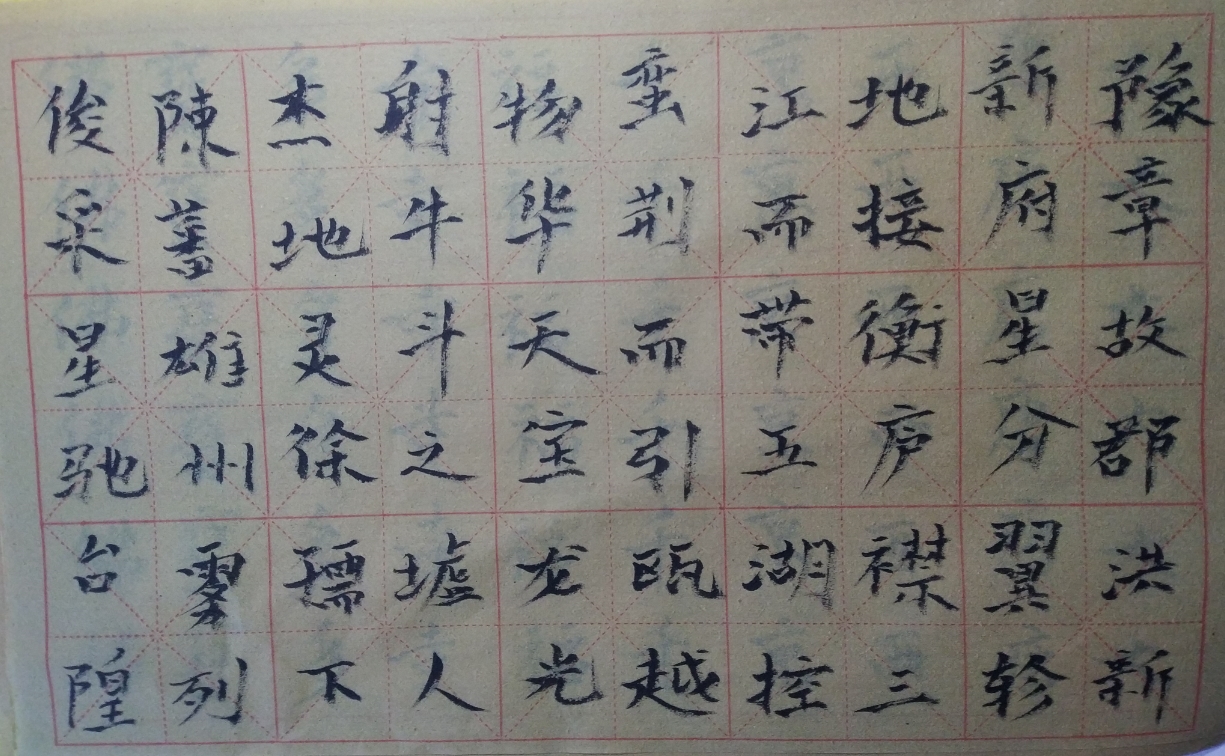 豫章故郡洪新
新府星分翼轸
地接衡庐襟三
江而带五湖控
蛮荆而引瓯越
物华天宝龙光
射牛斗之墟人
杰地灵徐孺下
陳蕃雄州雾列
俊采星驰台隍